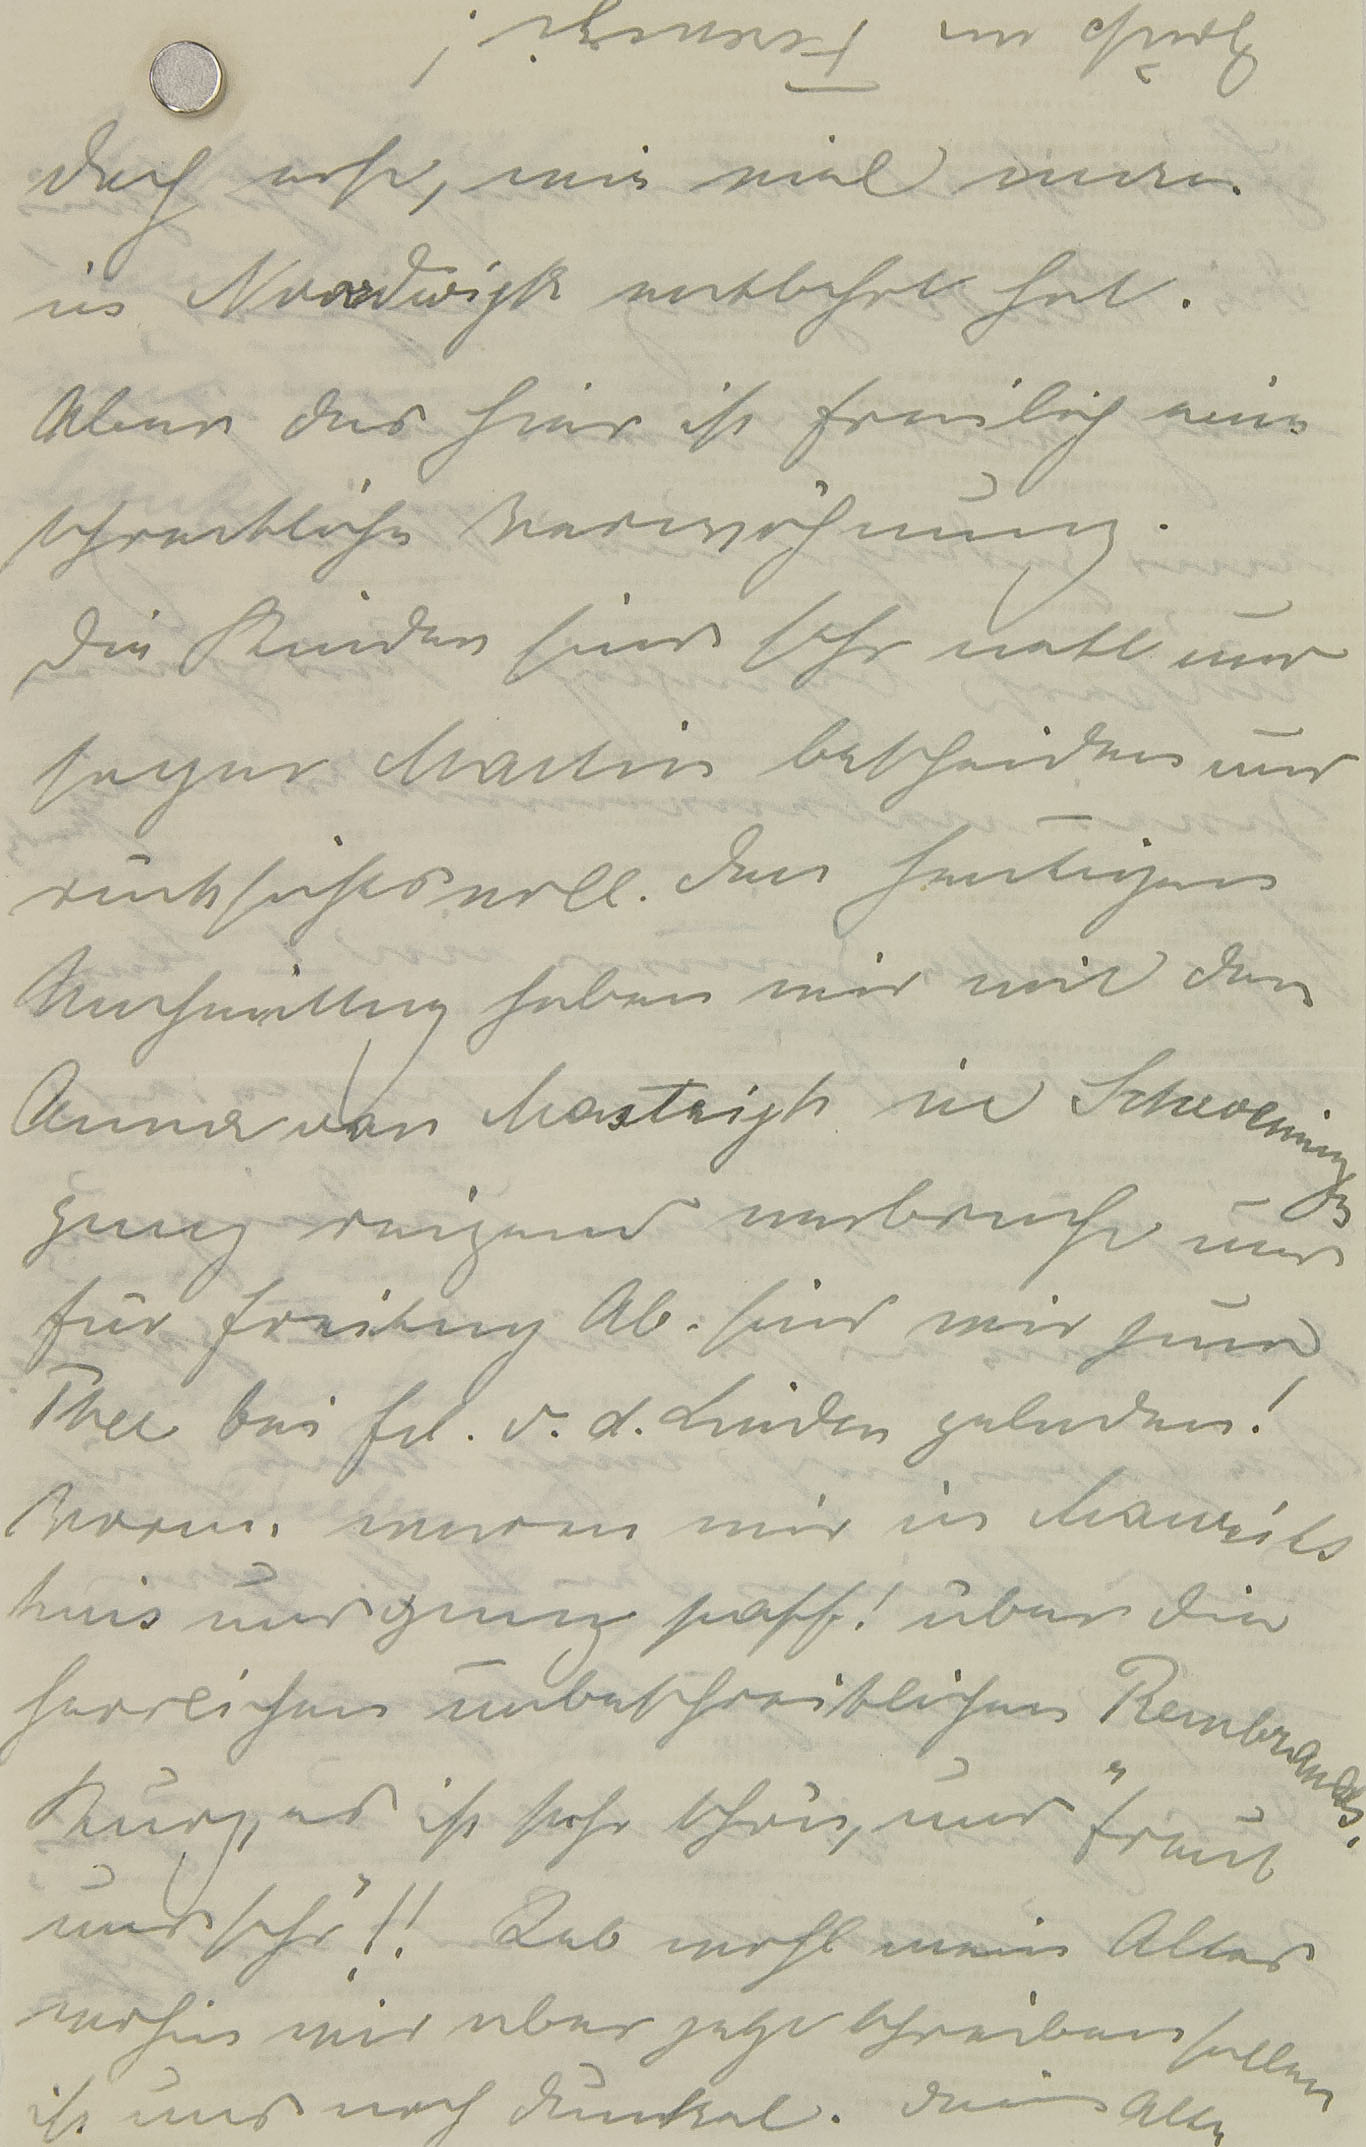 doch erst, wie viel man
in Noordwijk entbehrt hat.
Aber das hier ist freilich eine
schreckliche Verwöhnung.
Die Kinder sind sehr nett und
sogar Martin bescheiden und
rücksichtsvoll. Den heutigen
Nachmittag haben wir mit den
Anna van in Scheveningen
ganz reizend verbracht und
für Freitag Ab. sind wir zum
Thee bei Frl. v. d. Linden geladen!
Vorm. waren wir im Maurits
huis und ganz paff! über die
herrlichen unbeschreiblichen Rembrandts.
Kurz, es ist sehr schön, und "freut
uns sehr"!! Leb wohl mein Alter
wohin wir aber jetzt schreiben sollen
ist uns noch dunkel. Deine Alte
Gruß an